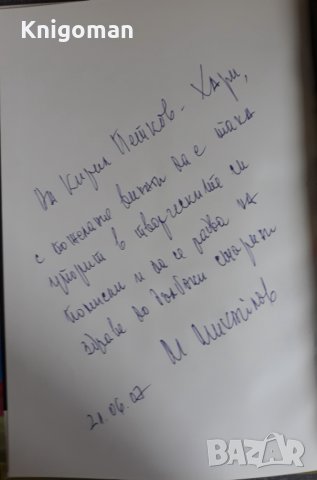 Knigoman
На Кирил Петков - Хари,
с пожелание винаги да е така
упорит в творческите си
поиски и да се радва на
здраве до дълбоки старини
М
21.06.07
BAZAR